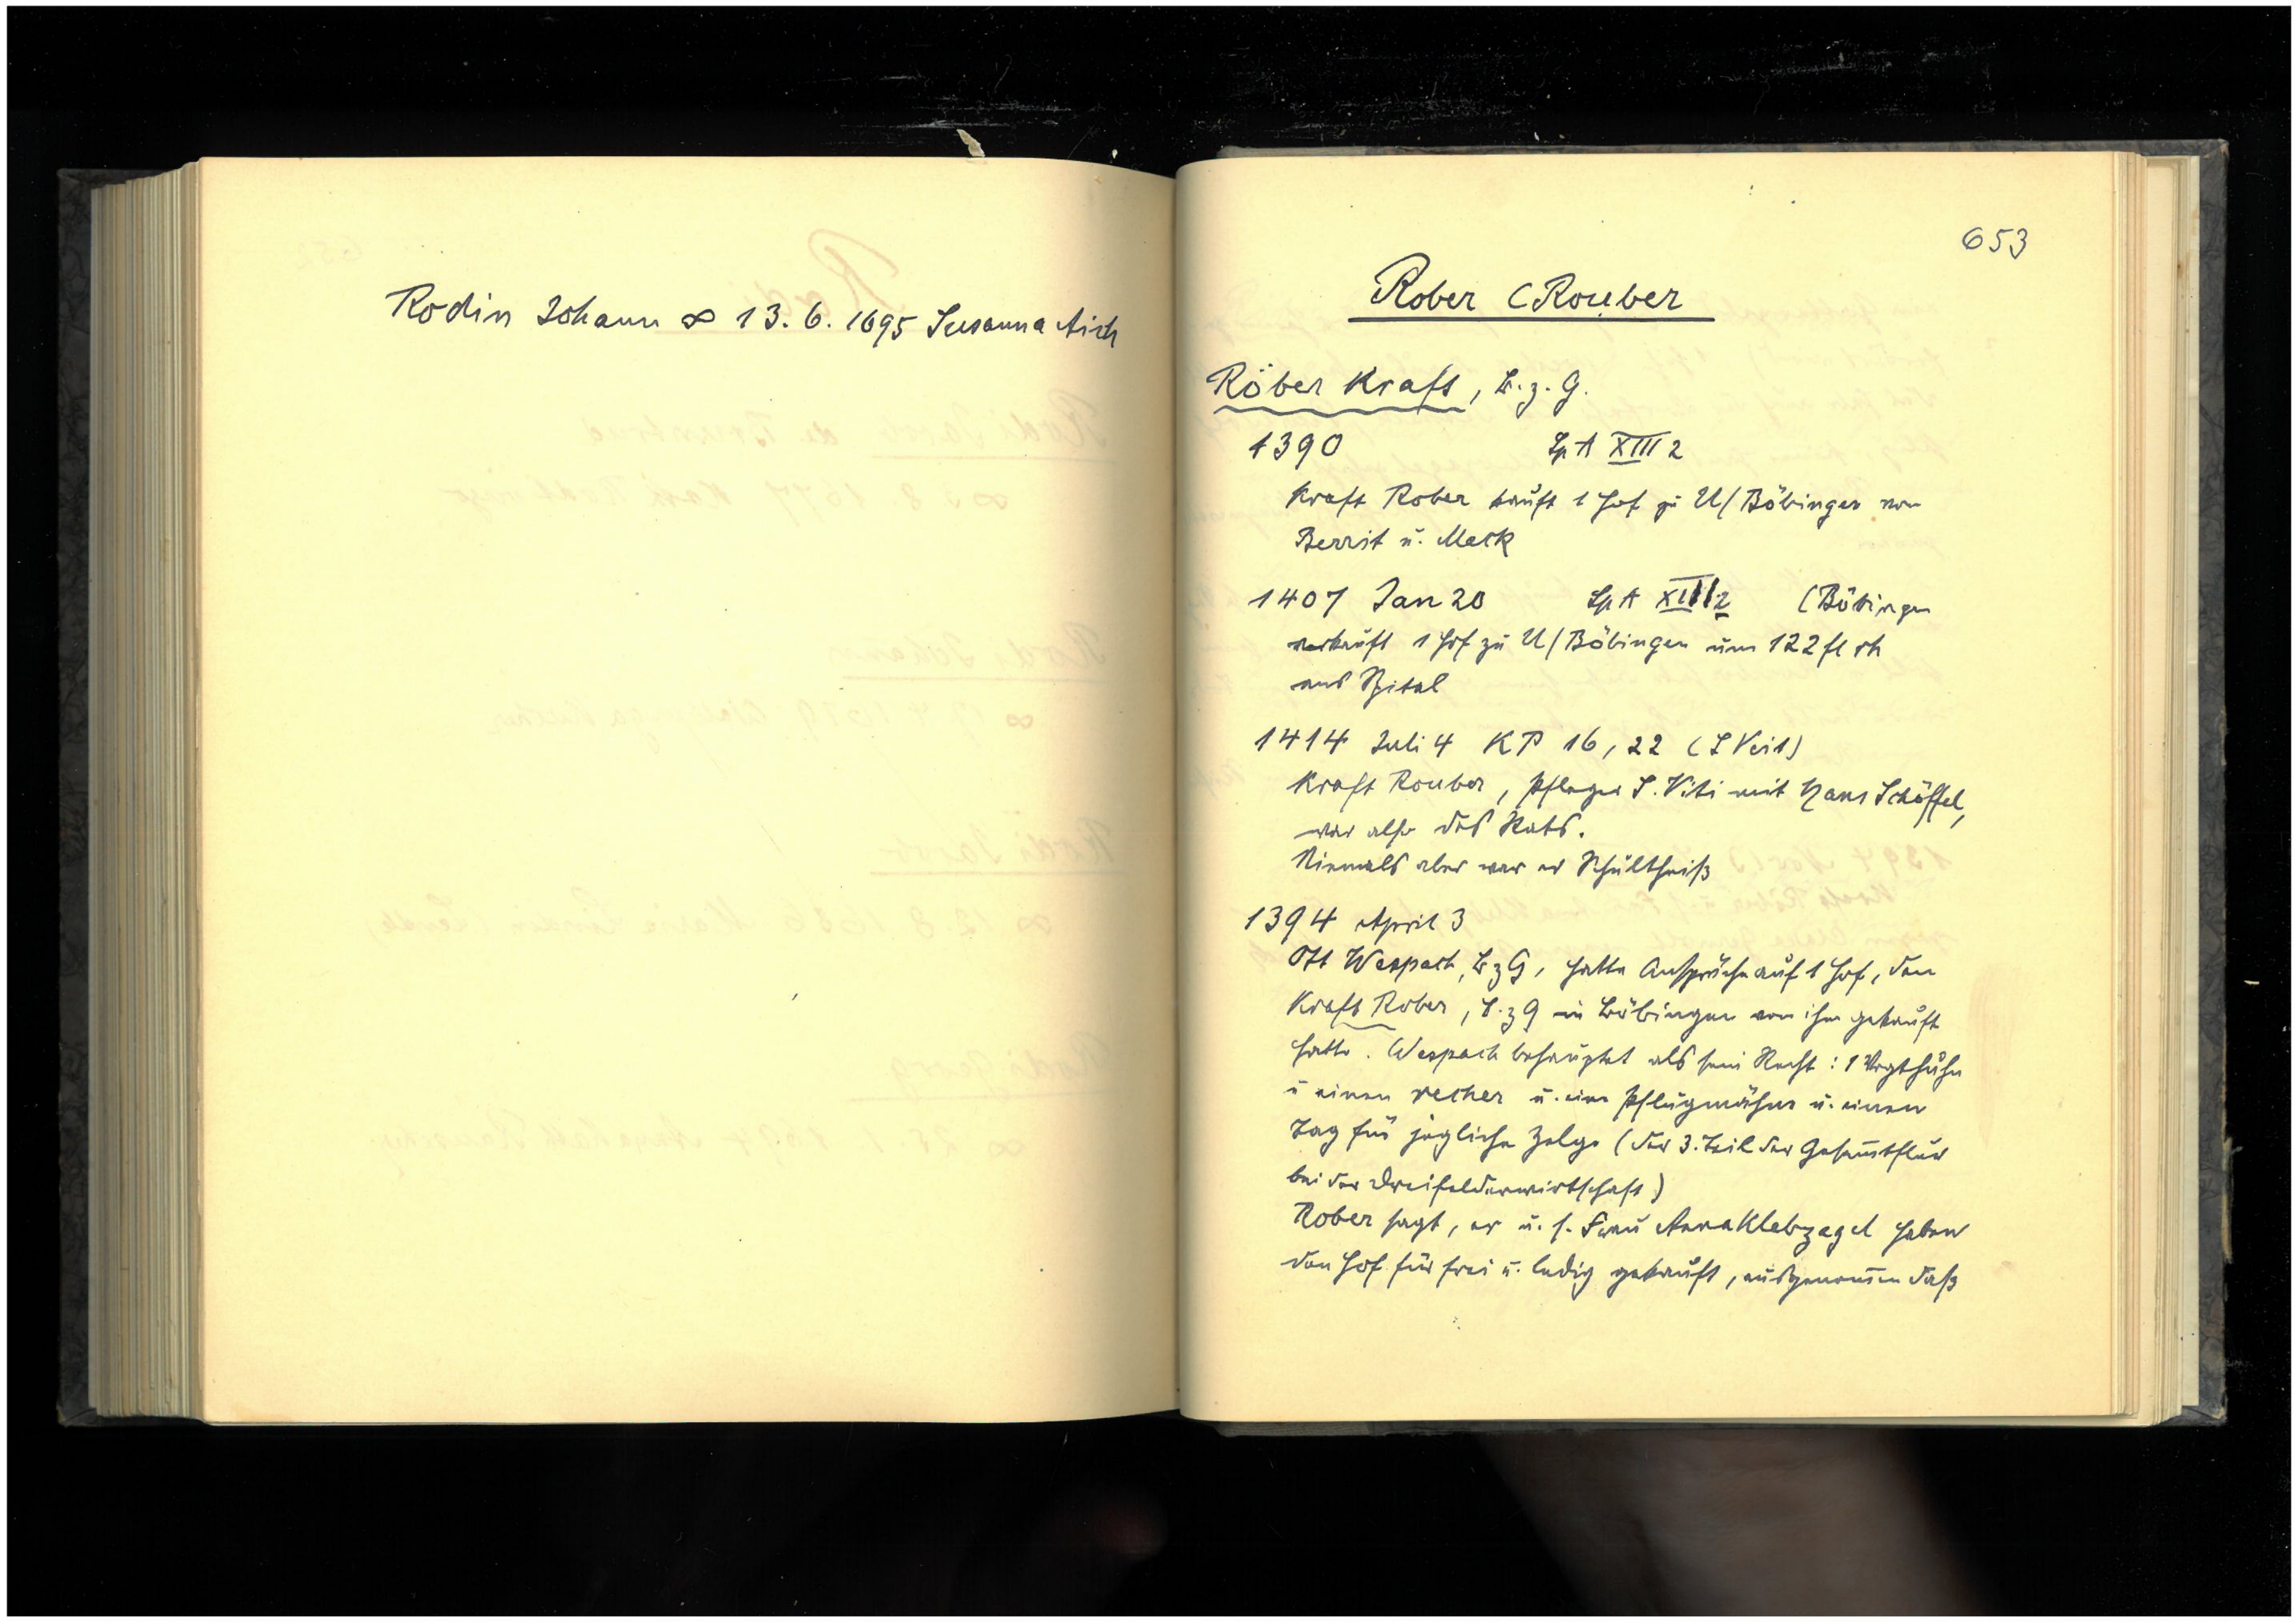 Rodin Johann ∞ 13. 6. 1695 Susanna Aich
653
Rober (Rouber
Röber Kraft, B. z. G.
1390 Sp A XIII 2
Kraft Rober kauft 1 Hof zu U/Böbingen von
Berrit u. Mack
1407 Jan 20 Sp A XIII 2 (Böbingen
verkauft 1 Hof zu U/Böbingen um 122 fl rh
ans Spital
1414 Juli 4 KP 16, 22 (S Veit)
Kraft Rouber, Pfleger S. Viti mit Hans Schöffel,
war also des Rats.
Niemals aber war er Schultheiß
1394 April 3
Ott Wespach, B z G, hatte Ansprüche auf 1 Hof, den
Kraft Rober, B. z G in Böbingen von ihm gekauft
hatte. Wespach behauptet als sein Recht: 1 Vogthuhn
u einen recher u. eine Pflugmähne u. einen
Tag für jegliche Zelge (der 3. Teil der Gesamtflur
bei der Dreifelderwirtschaft)
Rober sagt, er u. s. Frau Anna Klebzagel haben
den Hof für frei u. ledig gekauft, ausgenommen daß